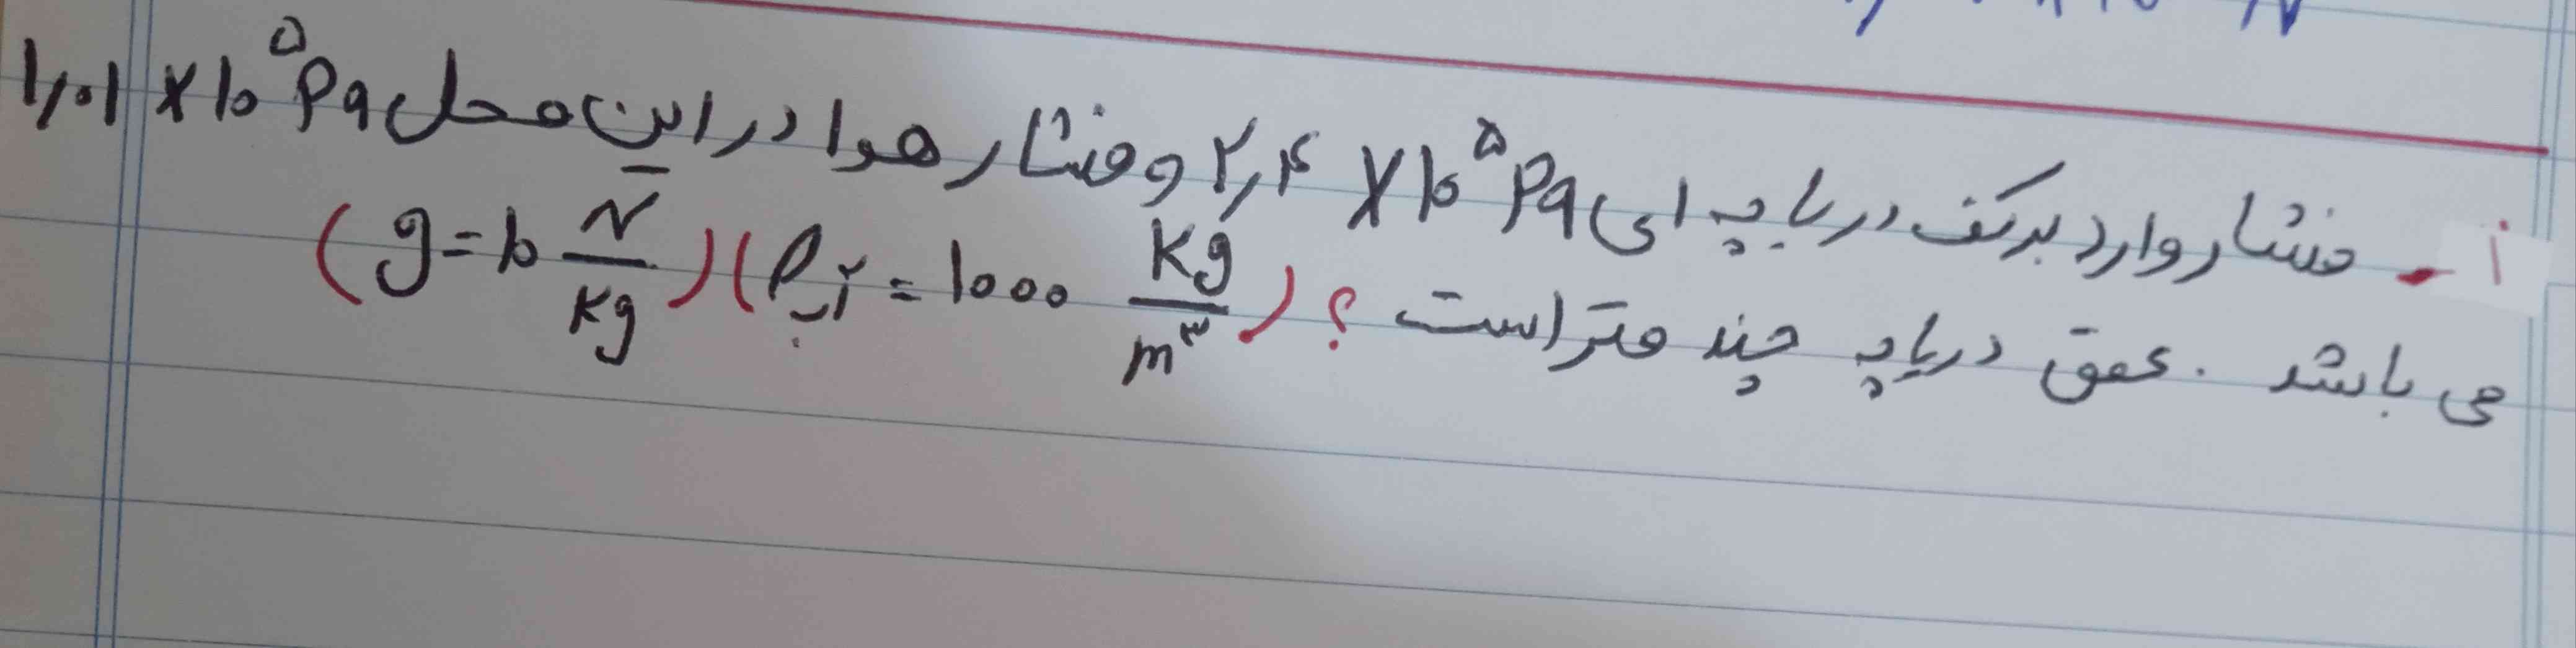 ۱- فشار وارد بر کف دریاچه ای ۲٫۴ × ۱۰^۵ Pa و فشار هوا در این محل ۱٫۰۱ × ۱۰^۵ Pa
می باشد . عمق دریاچه چند متر است ؟ (ρ آب = ۱۰۰۰ kg/m^۳) (g = ۱۰ N/kg)